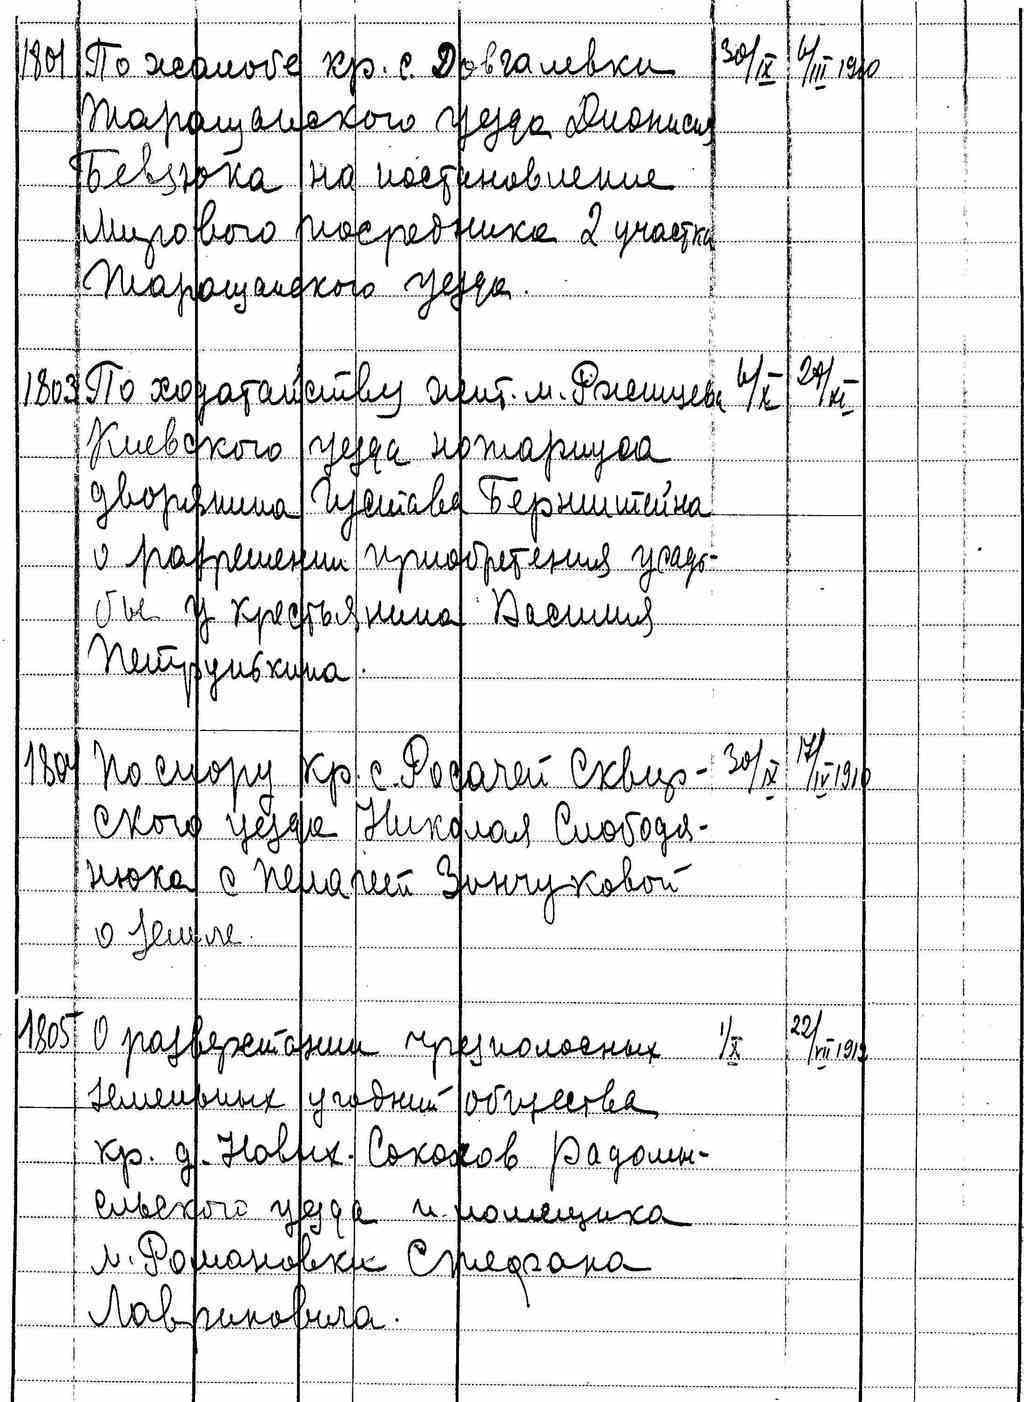 1801 По жалобе кр. с. Довгалевки 30/IX 6/III 1910
Таращанского уезда Дионисия
Бевзюка на постановление
мирового посредника 2 участка
Таращанского уезда.
1803 По ходатайству жит. м. Ржищева 6/X 24/XI
Киевского уезда нотариуса
дворянина Густава Бернштейна
о разрешении приобретения усадь-
бы у крестьянина Василия
Петрунькина.
1804 По спору кр. с. Рогачей Сквир- 30/IX 17/IV 1910
ского уезда Николая Слободя-
нюка с Пелагеей Зинчуковой
о земле.
1805 О разверстании чрезполосных 1/X 22/VII 1912
земельных угодий общества
кр. д. Новых-Соколов Радомы-
сльского уезда и помещика
м. Романовки Стефана